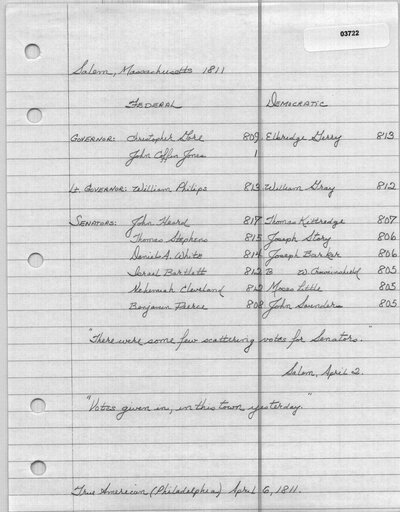 03722
Salem, Massachusetts 1811
FEDERAL DEMOCRATIC
GOVERNOR: Christopher Gore 809 Elbridge Gerry 813
John Coffin Jones 1
Lt. GOVERNOR: William Philips 813 William Gray 812
SENATORS: John Heard 817 Thomas Kittredge 807
Thomas Stephens 815 Joseph Story 806
Daniel A. White 814 Joseph Barker 806
Israel Bartlett 812 B W. Crowninshield 805
Nehemiah Cleveland 812 Moses Little 805
Benjamin Pierce 808 John Saunders 805
"There were some few scattering votes for Senators."
Salem, April 2.
"Votes given in, in this town yesterday."
True American (Philadelphia) April 6, 1811.